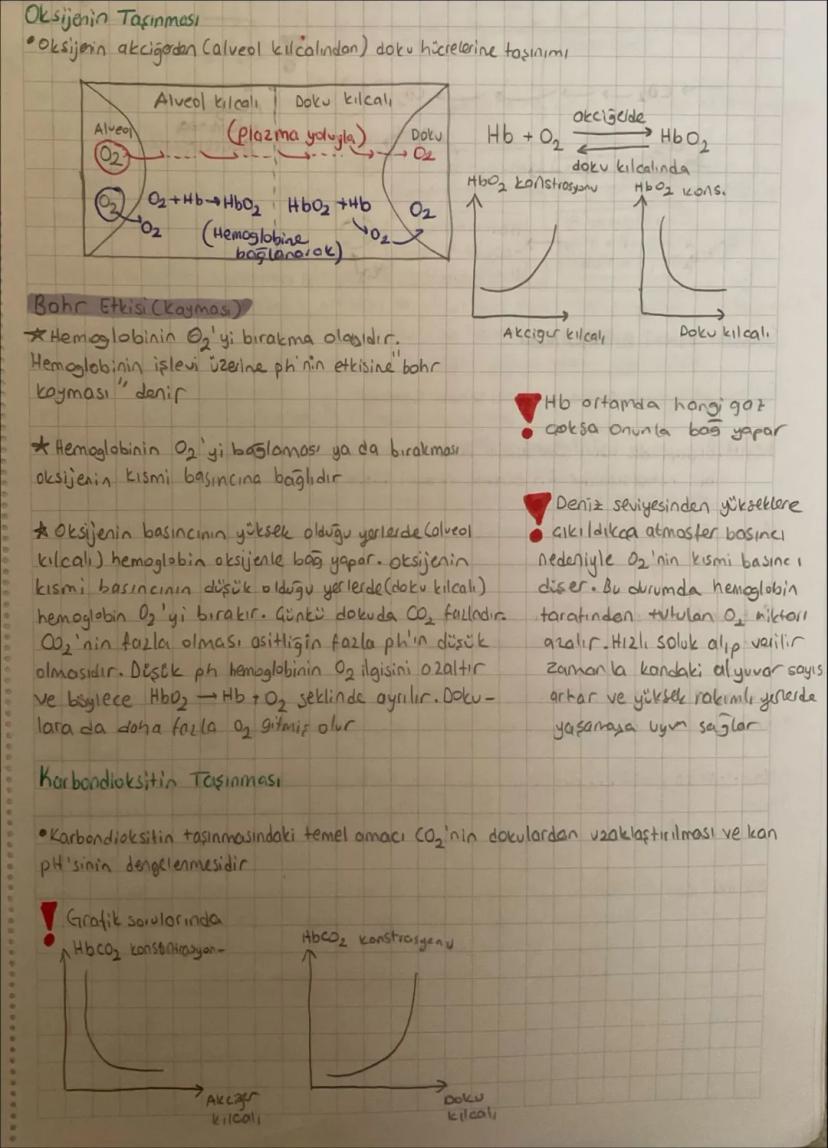 Oksijenin Taşınması
• Oksijenin akciğerden (alveol kılcalından) doku hücrelerine taşınımı
Alveol kılcalı Doku kılcalı
Alveol (plazma yoluyla) Doku
O₂ O₂
O₂ O₂+Hb→HbO₂ HbO₂+Hb O₂
O₂ (Hemoglobine O₂
bağlanarak)
akciğelde
Hb + O₂ HbO₂
doku kılcalında
HbO₂ konstrosyonu HbO₂ kons.
Akciğer kılcalı Doku kılcalı
Bohr Etkisi (kayması)
★ Hemoglobinin O₂'yi bırakma olayıdır.
Hemoglobinin işlevi üzerine ph'nin etkisine "bohr
kayması" denir
★ Hemoglobinin O₂'yi bağlaması ya da bırakması
oksijenin kısmi basıncına bağlıdır
★ Oksijenin basıncının yüksek olduğu yerlerde (alveol
kılcalı) hemoglobin oksijenle bağ yapar. oksijenin
kısmi basıncının düşük olduğu yerlerde (doku kılcalı)
hemoglobin O₂'yi bırakır. Çünkü dokuda CO₂ fazladır.
CO₂'nin fazla olması asitliğin fazla ph'ın düşük
olmasıdır. Düşük ph hemoglobinin O₂ ilgisini azaltır
ve böylece HbO₂ → Hb + O₂ şeklinde ayrılır. Doku-
lara da daha fazla O₂ gitmiş olur
! Hb ortamda hangi gaz
çoksa onunla bağ yapar
! Deniz seviyesinden yükseklere
çıkıldıkça atmosfer basıncı
nedeniyle O₂'nin kısmi basıncı
düşer. Bu durumda hemoglobin
tarafından tutulan O₂ miktarı
azalır. Hızlı soluk alıp verilir
zamanla kandaki alyuvar sayıs
artar ve yüksek rakımlı yerlerde
yaşamaya uyum sağlar
Karbondioksitin Taşınması
• Karbondioksitin taşınmasındaki temel amacı CO₂'nin dokulardan uzaklaştırılması ve kan
pH'sinin dengelenmesidir
! Grafik sorularında
HbCO₂ konstntrasyon- HbCO₂ konstrasyonu
Akciğer Doku
kılcalı kılcalı